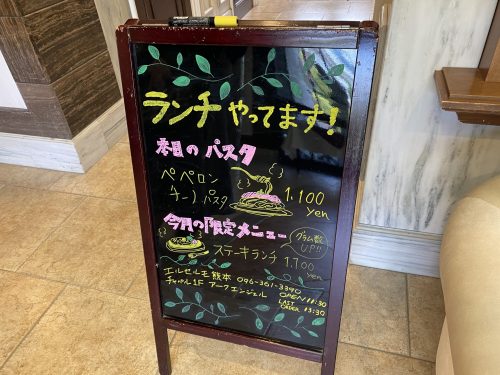 ランチやってます!
本日のパスタ
ペペロン
チーノパスタ
1.100
yen
今月の限定メニュー
グラム数
UP!!
ステーキランチ 1.700
yen
エルセルモ熊本 096-361-3390
チャペル1F アークエンジェル
OPEN 11:30
LAST
ORDER 13:30